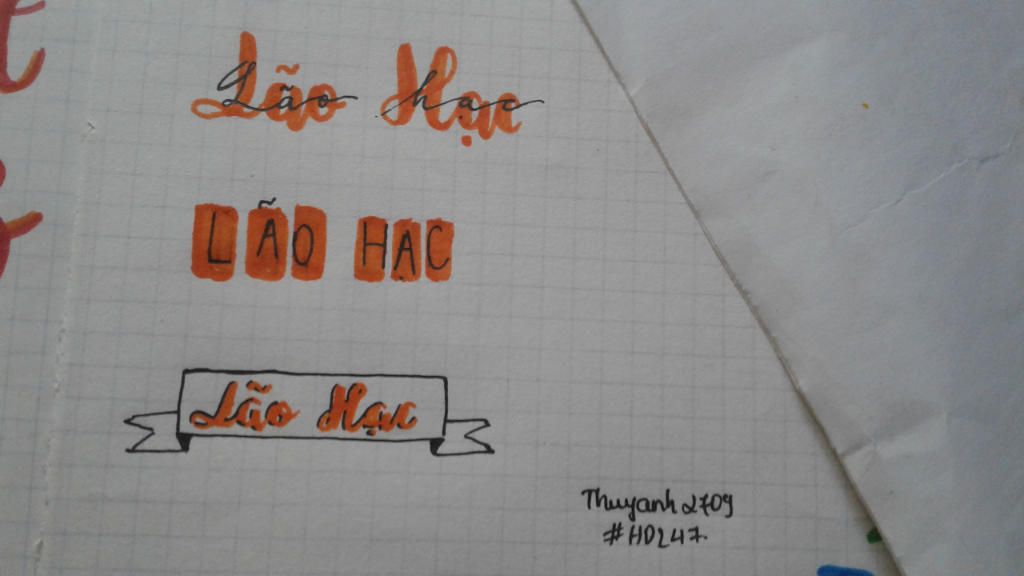 Lão Hạc
LÃO HẠC
Lão Hạc
Thuyanh2709
#HD247.